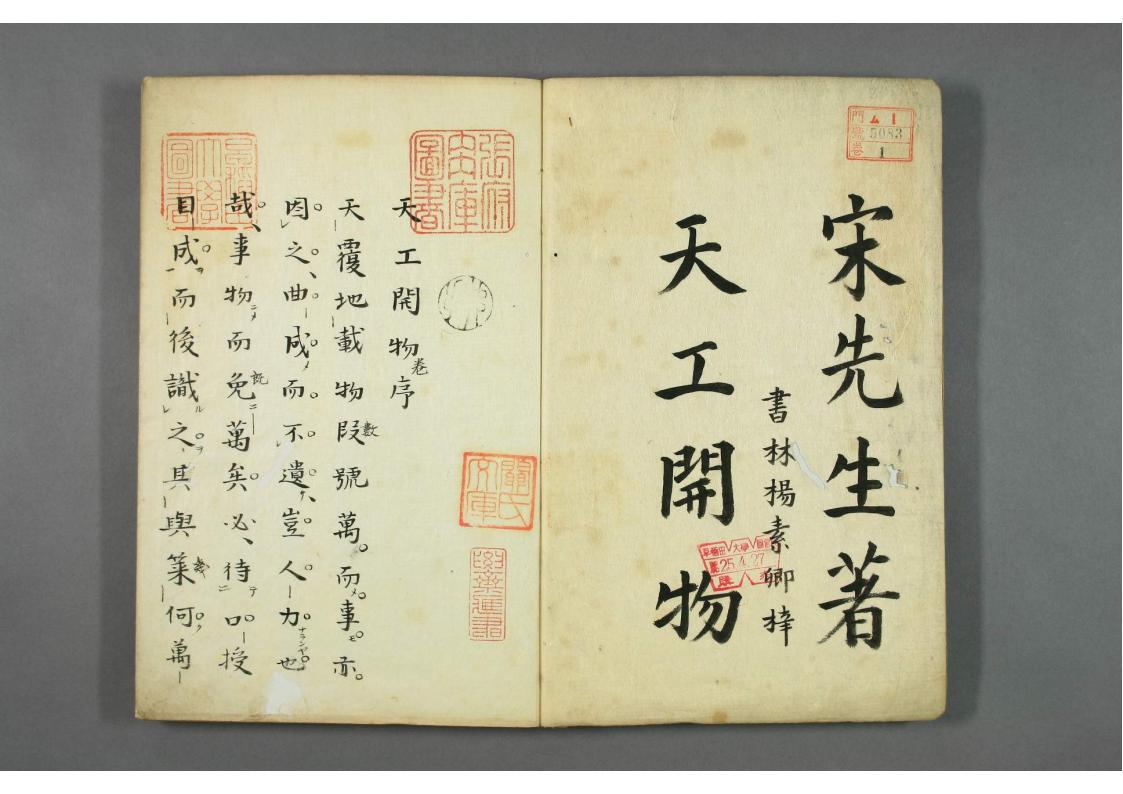 宋先生著
書林楊素卿梓
天工開物
門 ム1
號 5083
卷 1
早稻田大學圖書
25.4.27
天工開物卷序
天覆地載物叚數號萬而事亦
因之曲成而不遺豈人力也
ナランヤ
哉事物而免既萬矣必待口授
目成而後識之其與㡬何萬
張府
文庫
圖書
早稲田
大學
圖書
關氏
文庫